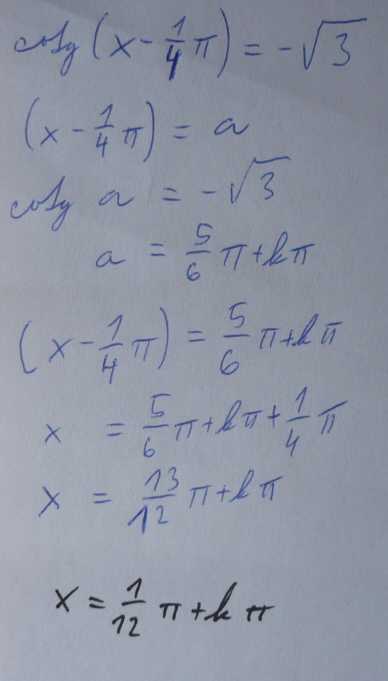 cotg (x - 1/4 π) = -√3
(x - 1/4 π) = a
cotg a = -√3
a = 5/6 π + kπ
(x - 1/4 π) = 5/6 π + kπ
x = 5/6 π + kπ + 1/4 π
x = 13/12 π + kπ
x = 1/12 π + kπ